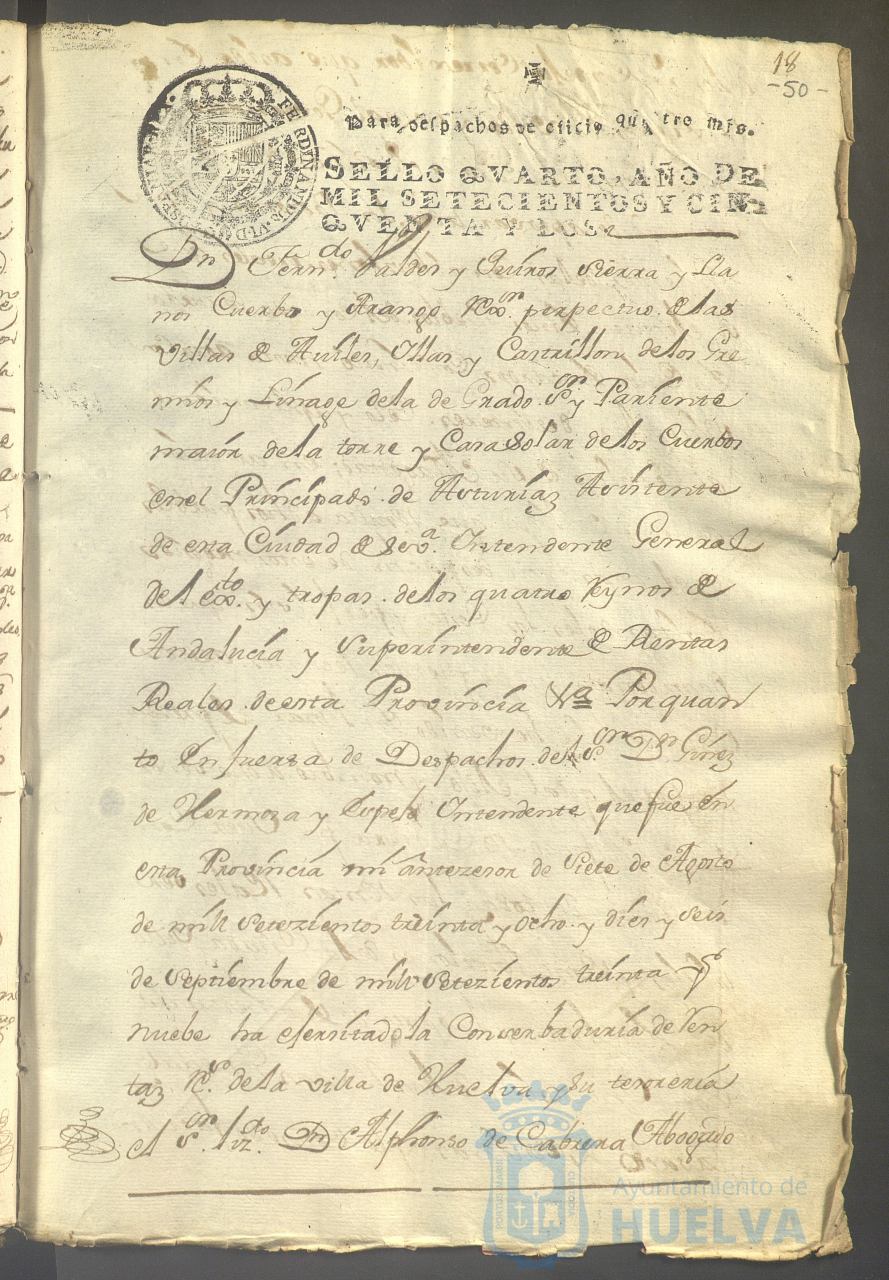 18
-50-
Para despachos de oficio quatro mrs.
SELLO QVARTO, AÑO DE
MIL SETECIENTOS Y CIN-
QVENTA Y DOS.
Dn Ferndo Valdes y Quiros Sierra y Lla
nos Cuerbo y Arango Rexor perpectuo de las
Villas de Aviles, Yllas y Castrillon de los Gre
mios y Linage de la de Grado Sor y Pariente
maior de la torre y Casa Solar de los Cuerbos
en el Principado de Asturias Asistente
de esta Ciudad de Seva. Intendente General
del exto. y tropas de los quatro Reynos de
Andalucia y Superintendente de Rentas
Reales de esta Provincia Xa Por quan
to En fuerza de Despachos del Sor Dn Ginez
de Hermosa y Espejo Intendente que fue en
esta Provincia mi antezesor de Siete de Agosto
de mill Setezientos treinta y ocho y dies y seis
de Septiembre de mill Setezientos treinta y
nuebe ha exersitado la Conserbaduria de Ren
taz Rs. de la villa de Huelva y su thesoreria
el Sor. Lizdo. Dn Alphonso de Cabrera Abogado
PORTUS MARIS
CUSTODIA
Ayuntamiento de
HUELVA